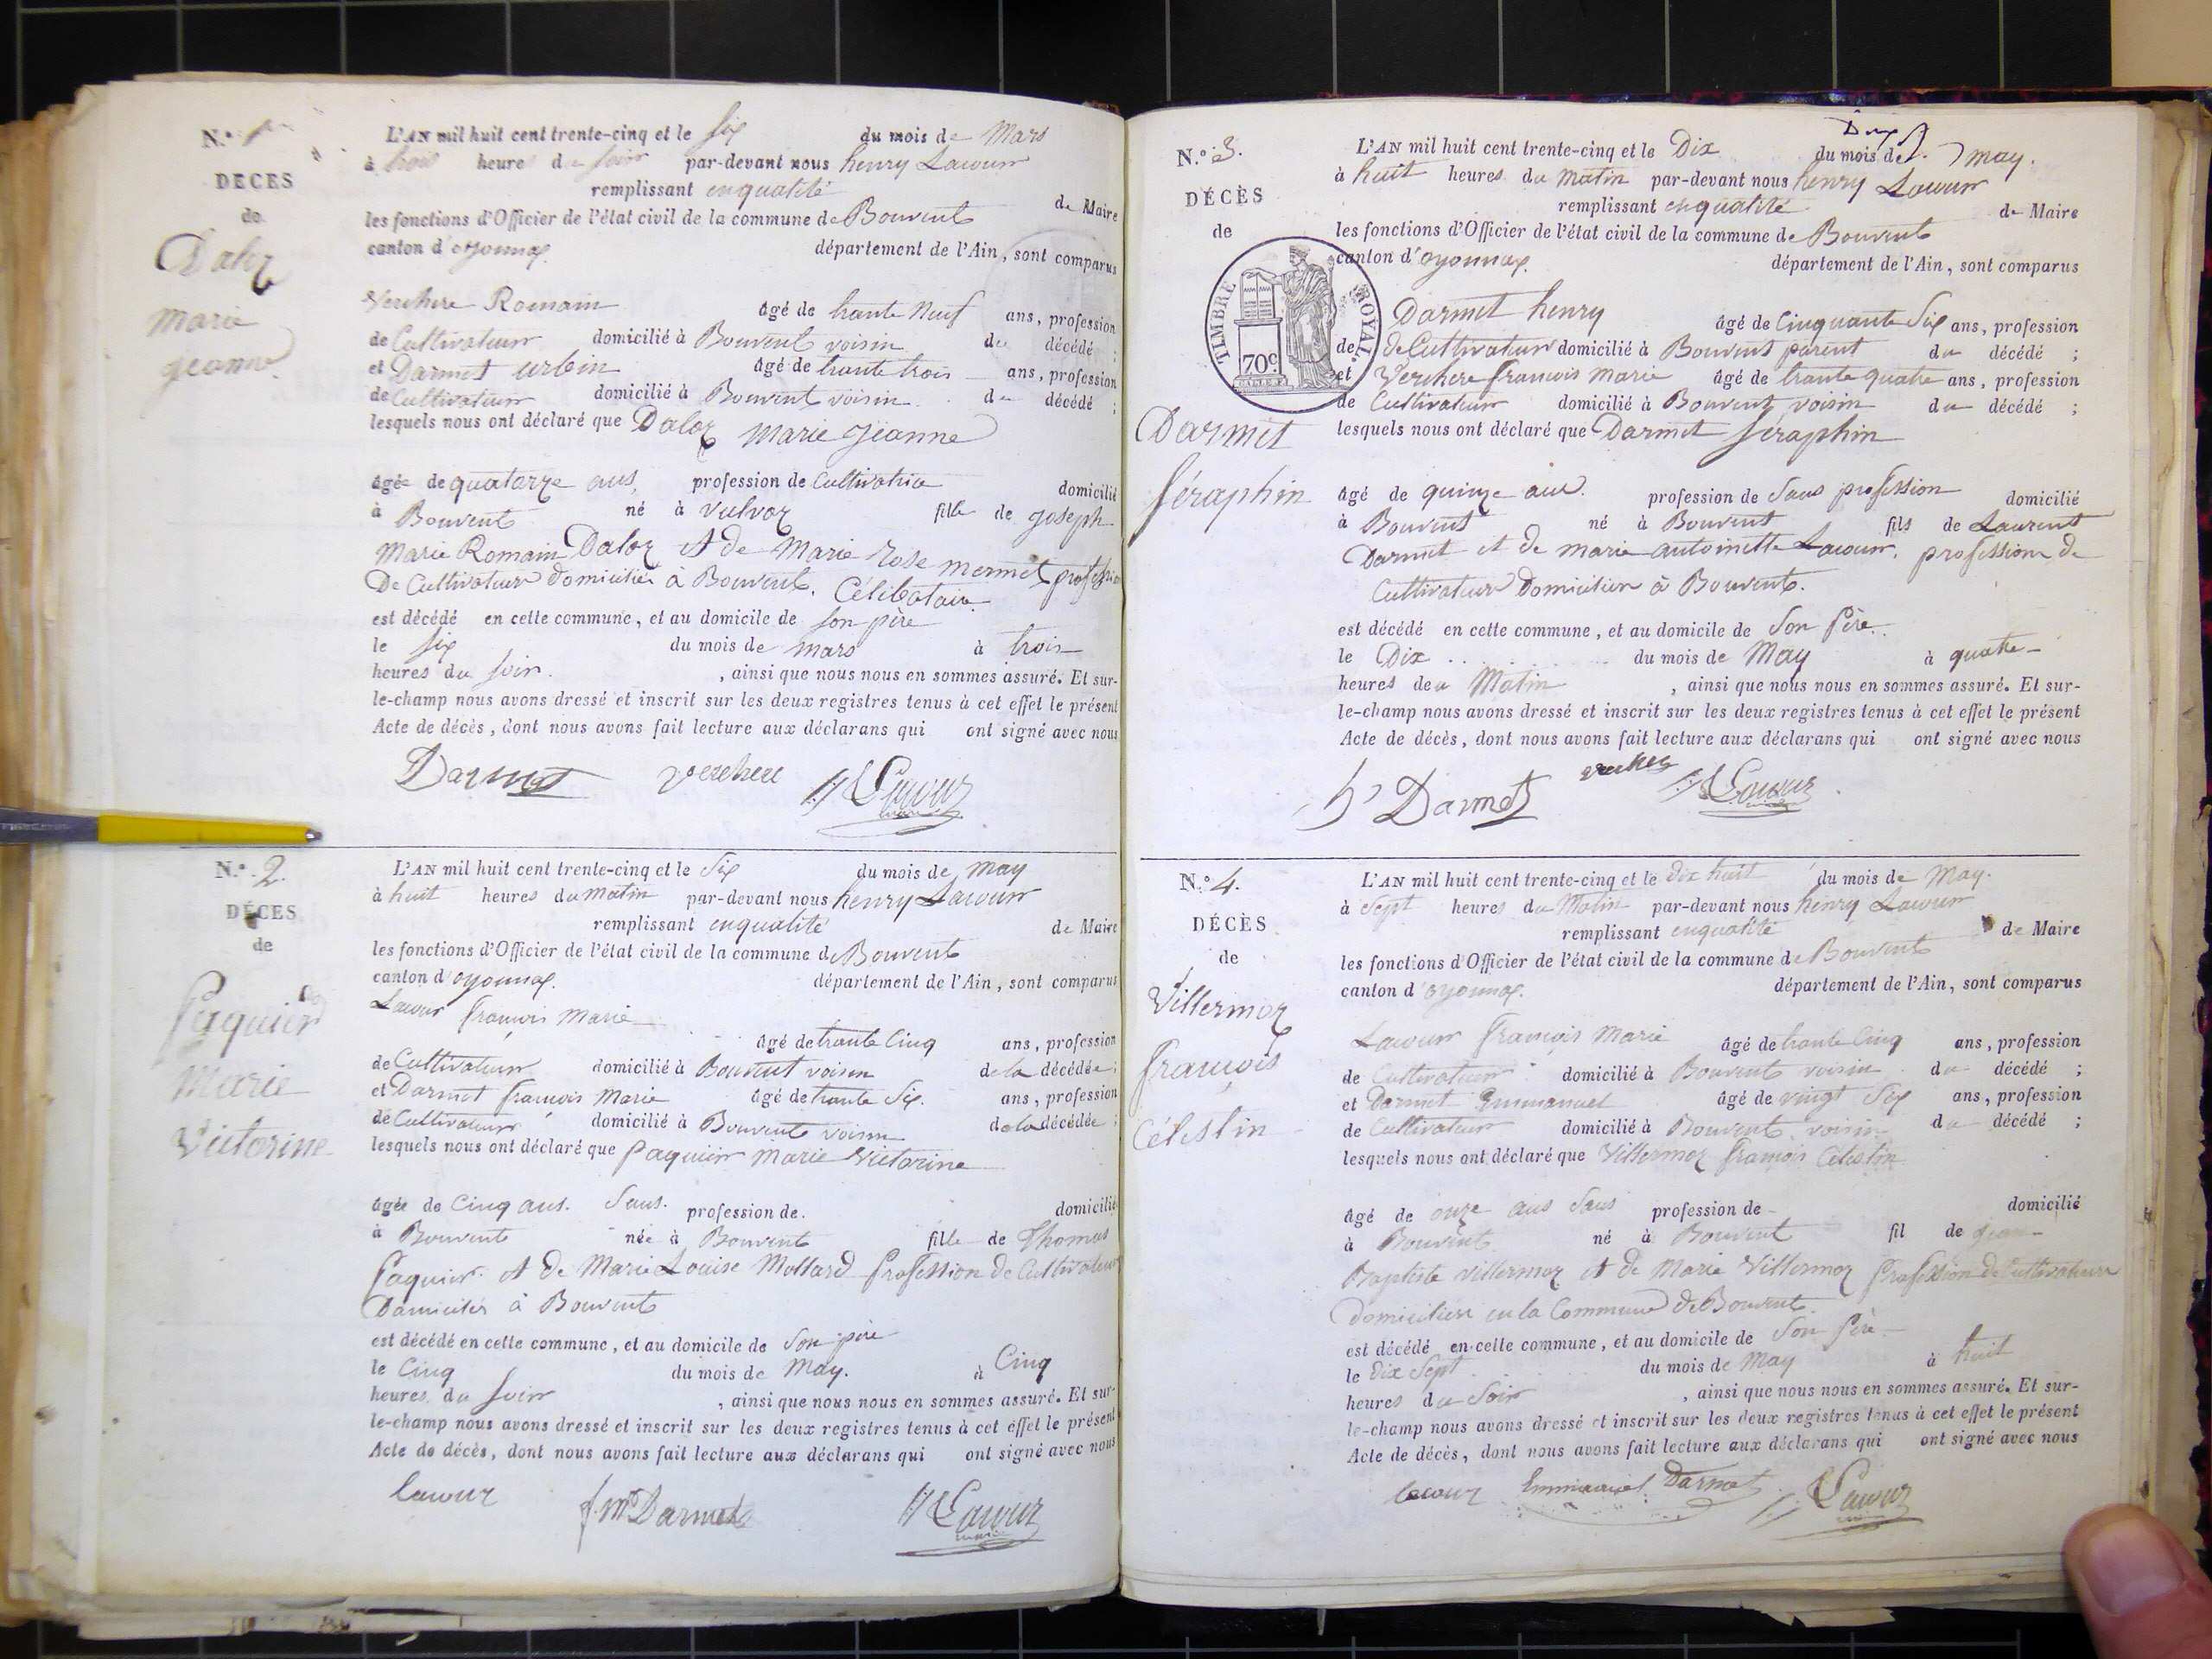 N.º 1
DECES
de
Daloz
Marie
jeanne
L'AN mil huit cent trente-cinq et le six du mois de Mars
à trois heures du soir par-devant nous henry Lacour
remplissant enqualité de Maire
les fonctions d'Officier de l'état civil de la commune de Bouvent
canton d'oyonnax. département de l'Ain, sont comparus
Verchere Romain âgé de trante Neuf ans, profession
de Cultivateur domicilié à Bouvent voisin du décédé ;
et Darmet urbin âgé de trante trois ans, profession
de Cultivateur domicilié à Bouvent voisin du décédé ;
lesquels nous ont déclaré que Daloz Marie jeanne
âgée de quatorze ans, profession de Cultivatrice domicilié
à Bouvent né à Vulvoz fille de joseph
Marie Romain Daloz et de Marie rose mermet profession
De Cultivateur domiciliér à Bouvent. Célibataire
est décédé en cette commune, et au domicile de son père
le six du mois de mars à trois
heures du soir. , ainsi que nous nous en sommes assuré. Et sur-
le-champ nous avons dressé et inscrit sur les deux registres tenus à cet effet le présent
Acte de décès, dont nous avons fait lecture aux déclarans qui ont signé avec nous
Darmet verchere h Lacour
maire
N.º 2.
DÉCES
de
Paquier
Marie
Victorine
L'AN mil huit cent trente-cinq et le Six du mois de may
à huit heures du matin par-devant nous henry Lacour
remplissant enqualité de Maire
les fonctions d'Officier de l'état civil de la commune de Bouvent
canton d'oyonnax. département de l'Ain, sont comparus
Lacour françois Marie
âgé de trante Cinq ans, profession
de Cultivateur domicilié à Bouvent voisin de la décédée ;
et Darmet françois Marie âgé de trante Six. ans, profession
de Cultivateur domicilié à Bouvent voisin de la décédée ;
lesquels nous ont déclaré que Paquier Marie Victorine
âgée de Cinq ans. Sans. profession de. domicilié
à Bouvent née à Bouvent fille de Thomas
Paquier. et de Marie Louise Mollard profession de Cultivateur
Domiciliés à Bouvent
est décédé en cette commune, et au domicile de Son père
le Cinq du mois de May. à Cinq
heures du Soir , ainsi que nous nous en sommes assuré. Et sur-
le-champ nous avons dressé et inscrit sur les deux registres tenus à cet effet le présent
Acte de décès, dont nous avons fait lecture aux déclarans qui ont signé avec nous
lacour f. m Darmet h Lacour
maire
N.º 3.
DÉCÈS
de
TIMBRE ROYAL
70c
Darmet
Séraphin
L'AN mil huit cent trente-cinq et le Dix du mois de may.
à huit heures du Matin par-devant nous henry Lacour
remplissant enqualité de Maire
les fonctions d'Officier de l'état civil de la commune de Bouvent
canton d'oyonnax. département de l'Ain, sont comparus
Darmet henry âgé de Cinquante Six ans, profession
de de Cultivateur domicilié à Bouvent parent du décédé ;
et Verchere françois Marie âgé de trante quatre ans, profession
de Cultivateur domicilié à Bouvent voisin du décédé ;
lesquels nous ont déclaré que Darmet Seraphin
âgé de quinze ans. profession de Sans profession domicilié
à Bouvent né à Bouvent fils de Laurent
Darmet et de marie antoinette Lacour, profession de
Cultivateur Domicilier à Bouvent.
est décédé en cette commune, et au domicile de Son Père.
le Dix du mois de May à quatre
heures du Matin , ainsi que nous nous en sommes assuré. Et sur-
le-champ nous avons dressé et inscrit sur les deux registres tenus à cet effet le présent
Acte de décès, dont nous avons fait lecture aux déclarans qui ont signé avec nous
h Darmet verchere h Lacour
maire
N.º 4.
DÉCÈS
de
Villermoz
françois
Célestin
L'AN mil huit cent trente-cinq et le dix huit du mois de May.
à Sept heures du Matin par-devant nous henry Lacour
remplissant enqualité de Maire
les fonctions d'Officier de l'état civil de la commune de Bouvent
canton d'oyonnax. département de l'Ain, sont comparus
Lacour françois Marie âgé de trante Cinq ans, profession
de Cultivateur domicilié à Bouvent voisin du décédé ;
et Darmet Emmanuel âgé de vingt Six ans, profession
de Cultivateur domicilié à Bouvent voisin du décédé ;
lesquels nous ont déclaré que Villermoz françois Célestin
âgé de onze ans Sans profession de domicilié
à Bouvent né à Bouvent fil de jean
Baptiste villermoz et de Marie Villermoz profession de Cultivateur
domicilier en la Commune de Bouvent.
est décédé en cette commune, et au domicile de Son Père
le Dix Sept du mois de May à huit
heures du Soir , ainsi que nous nous en sommes assuré. Et sur-
le-champ nous avons dressé et inscrit sur les deux registres tenus à cet effet le présent
Acte de décès, dont nous avons fait lecture aux déclarans qui ont signé avec nous
lacour Emmanuel Darmet h Lacour